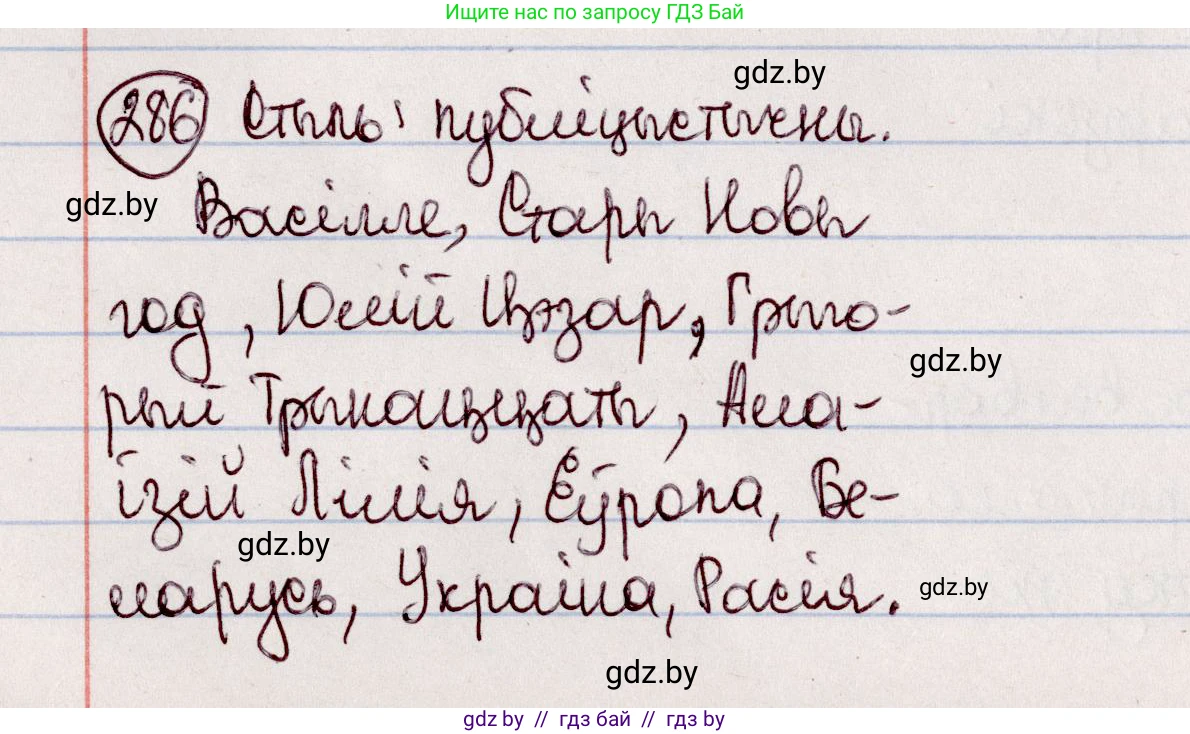 Ищите нас по запросу ГДЗ Бай
gdz.by
286 Стыль: публіцыстычны.
gdz.by
Васілле, Стары Новы
год, Юлій Цэзар, Грыго-
gdz.by
рый Трынаццаты, Ала-
ізій Лілія, Еўропа, Бе-
gdz.by
ларусь, Украіна, Расія.
gdz.by
gdz.by
gdz by // гдз бай // гдз by